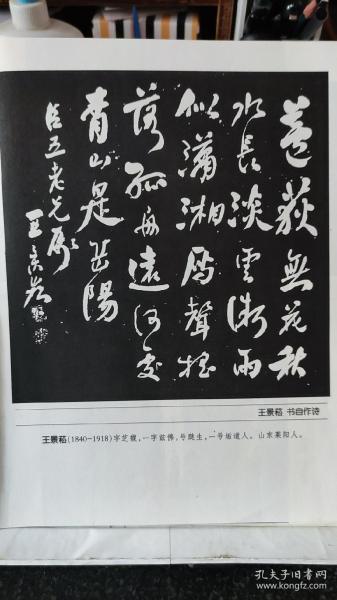 蘆荻無花秋
水長淡雲微雨
似瀟湘雁聲摇
落孤舟遠何處
青山是岳陽
五老兄
王景
王景 书自作诗
王景(1840-1918)字芝,一字兹佛,号生,一号垢道人。山东莱阳人。
孔夫子旧书网
www.kongfz.com